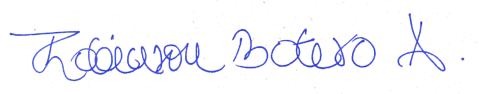 Robinson Botero A.